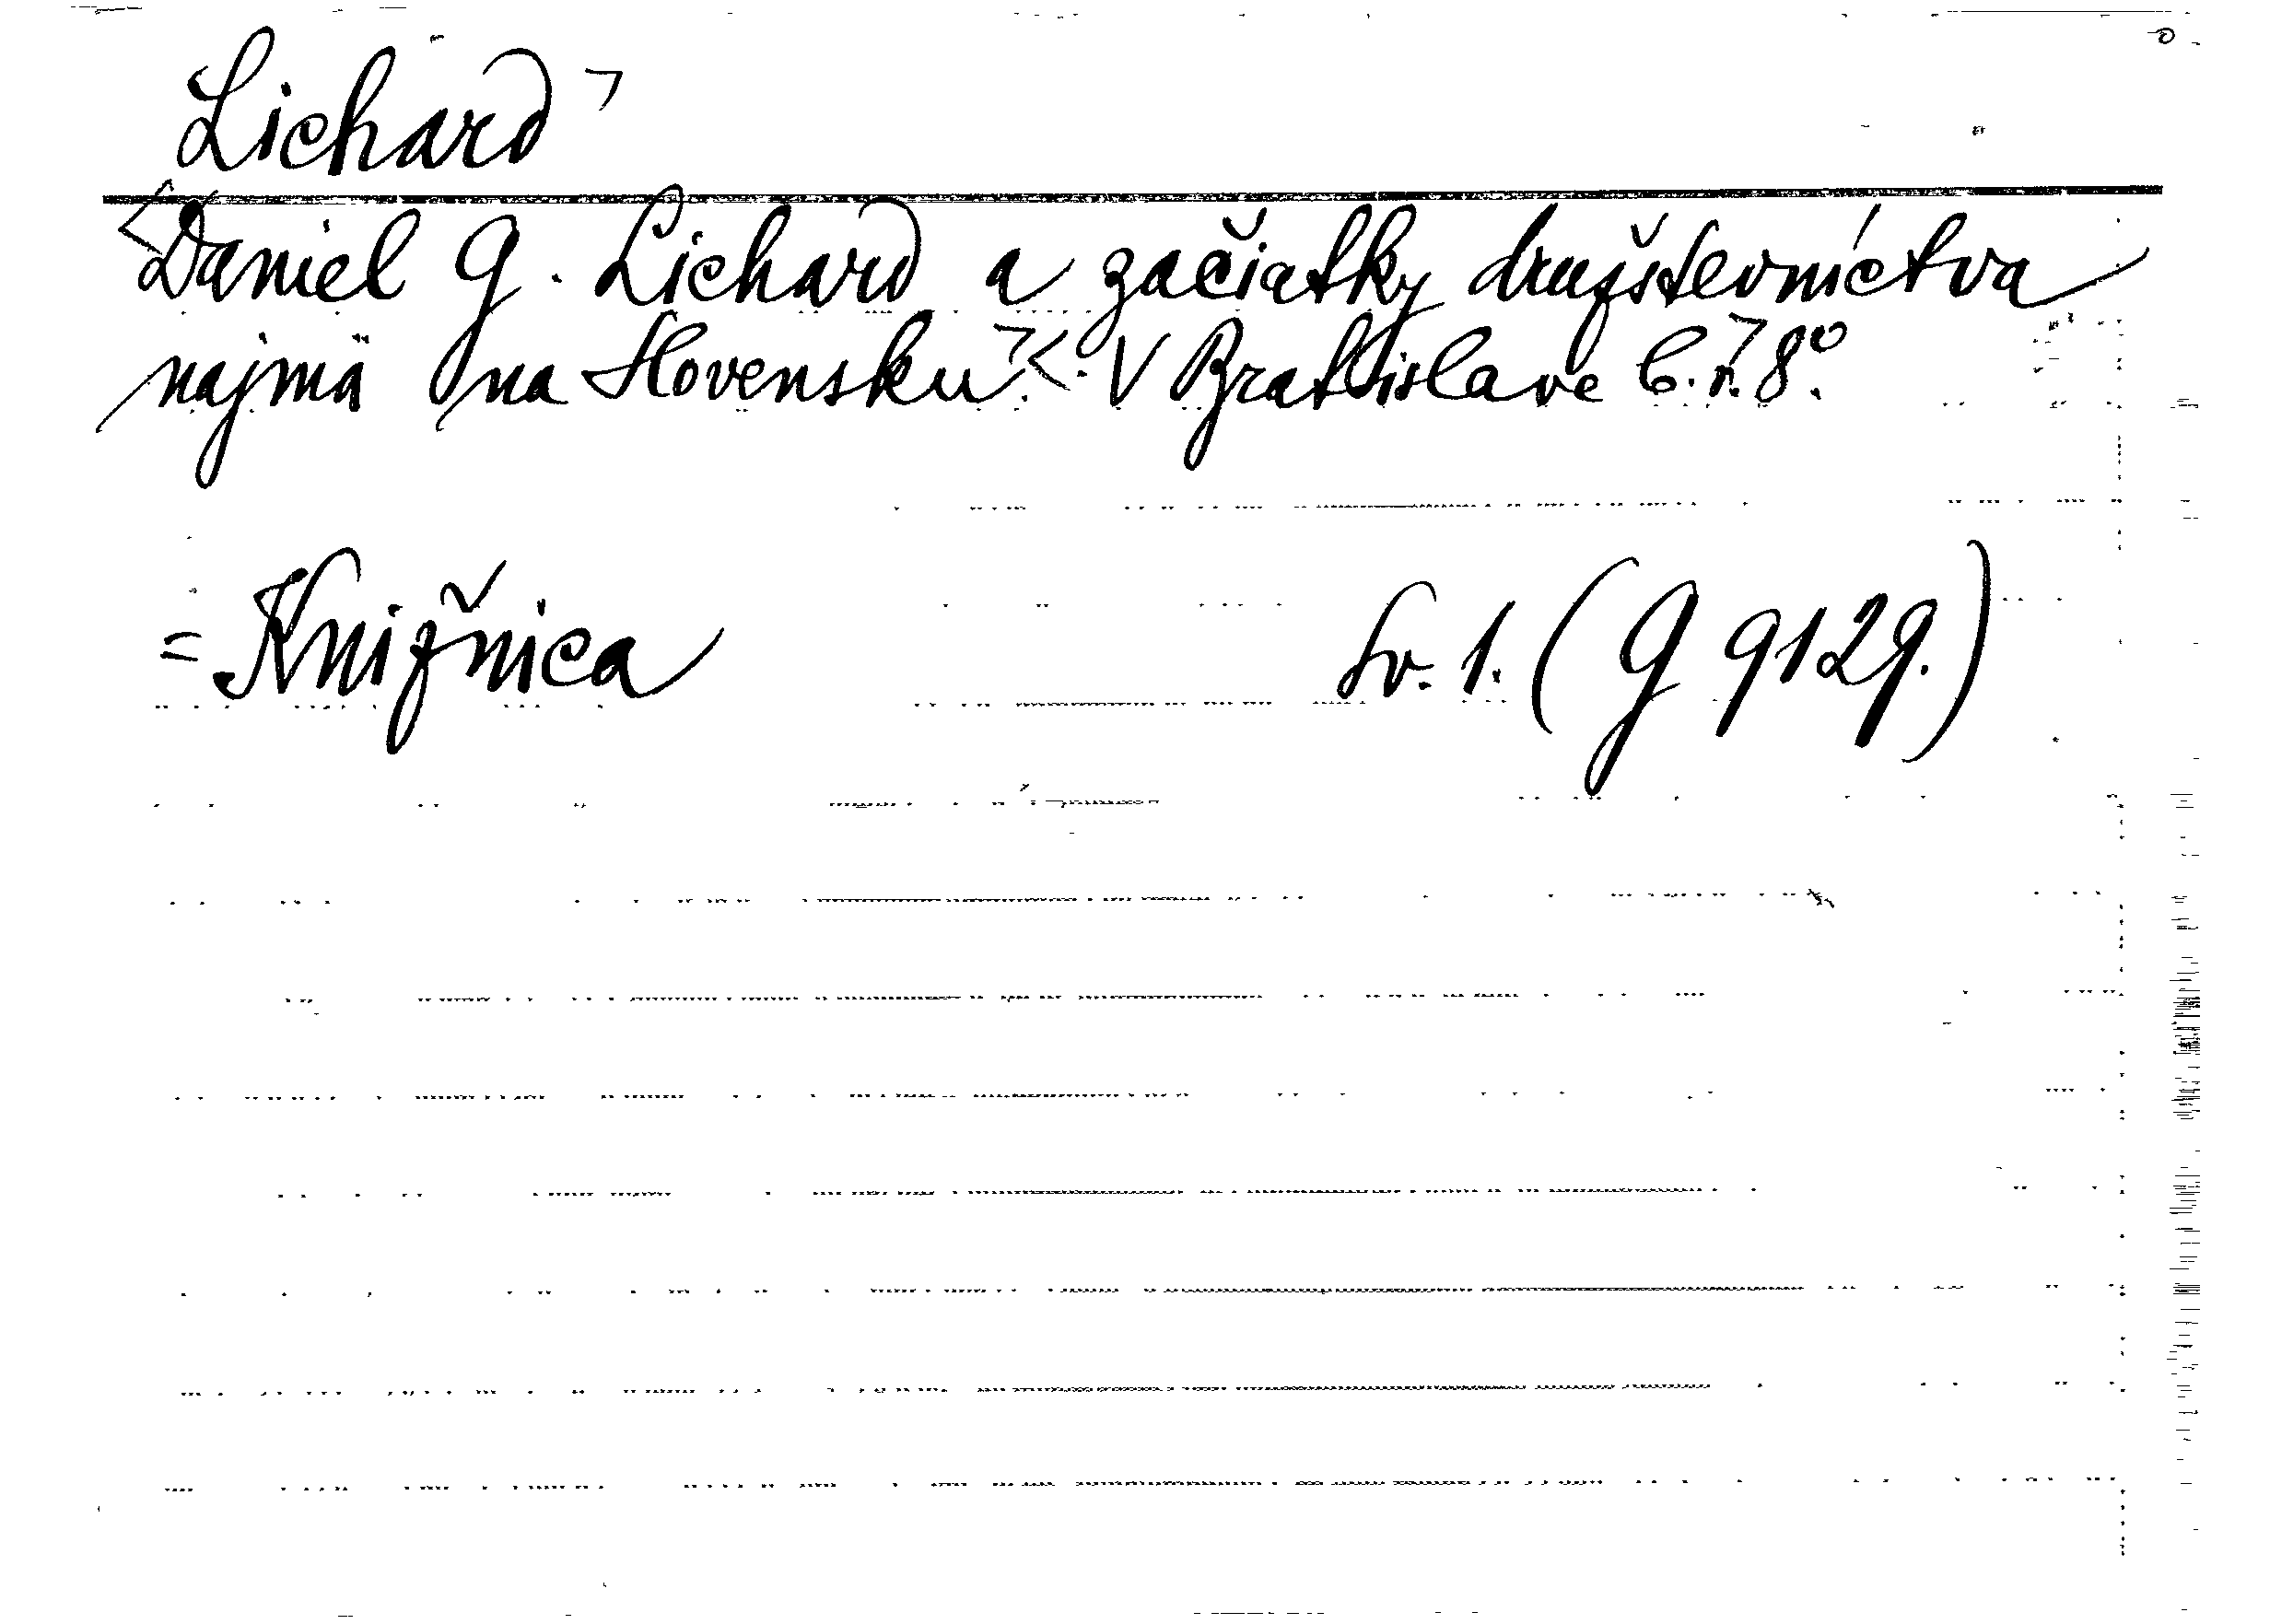 Lichard >
<Daniel G. Lichard a začiatky družstevníctva
najmä na Slovensku.> <. V Bratislave b. r.> 8º.
= Knižnica Sv. 1. (G 9129.)